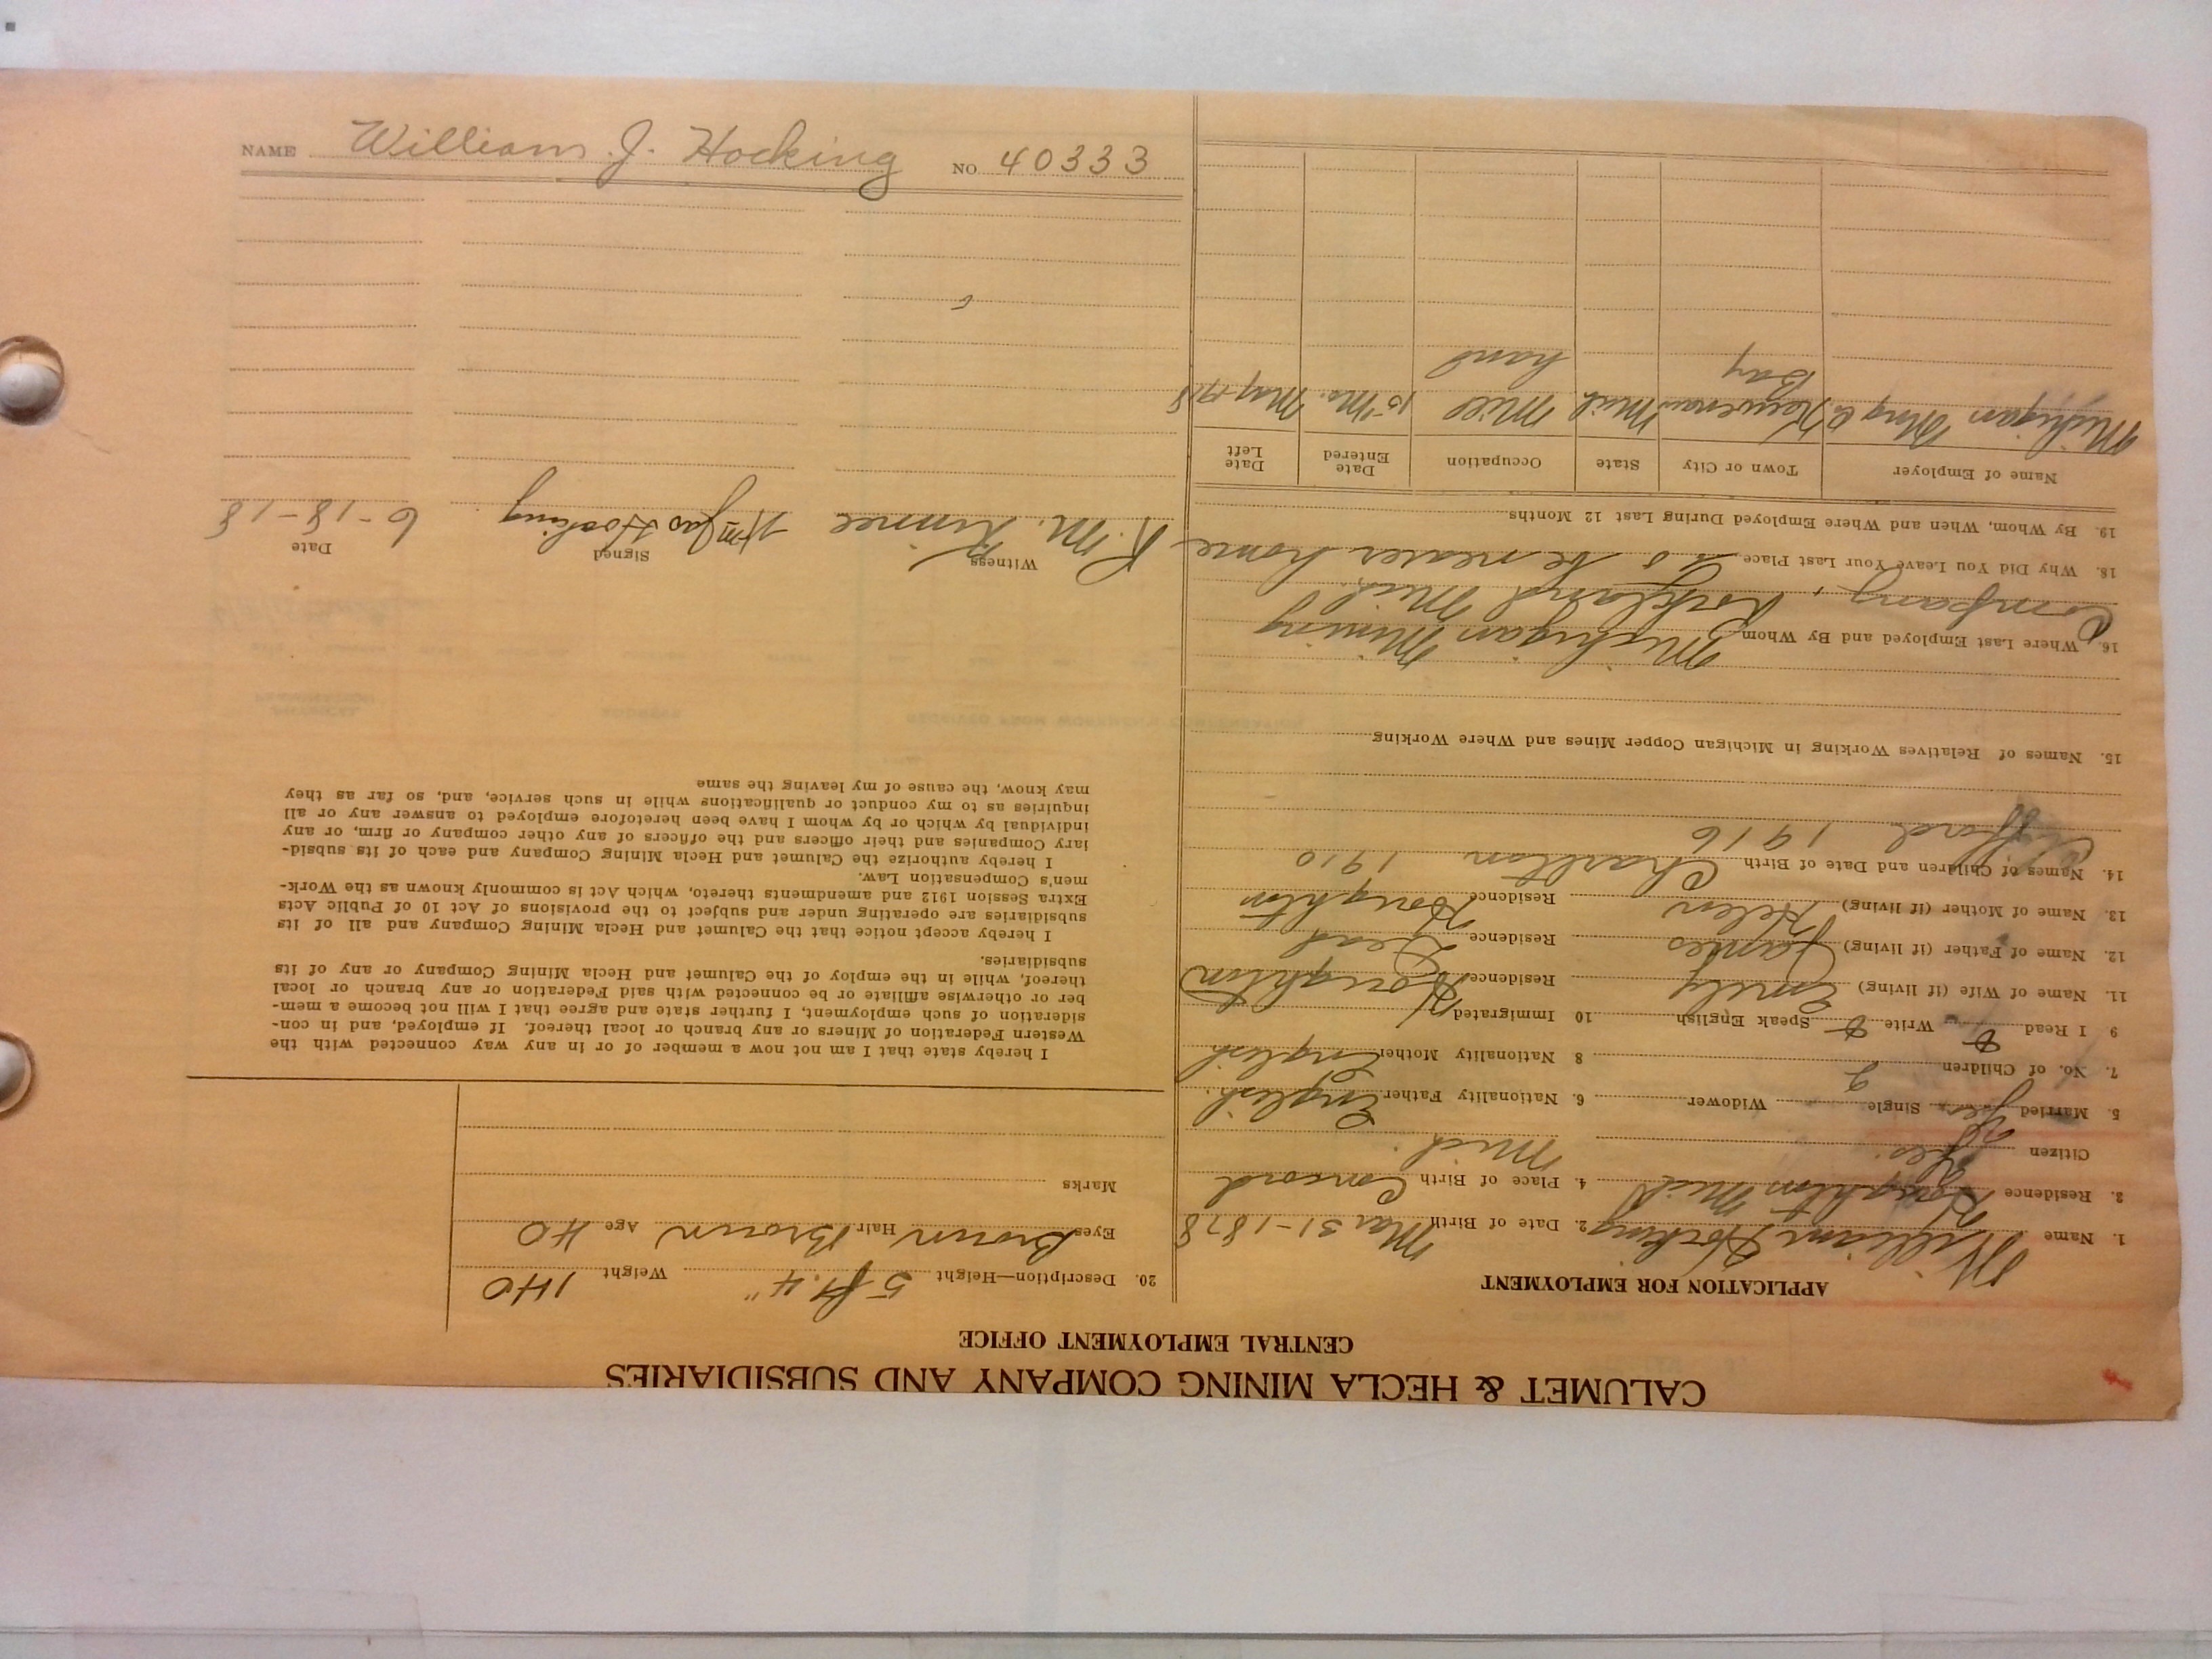 NAME William J. Hocking NO. 40333
CALUMET & HECLA MINING COMPANY AND SUBSIDIARIES
CENTRAL EMPLOYMENT OFFICE
APPLICATION FOR EMPLOYMENT
1. Name William Hocking 2. Date of Birth Mar 31-1878
3. Residence Houghton Mich 4. Place of Birth Concord
Mich.
Citizen Yes
5. Married Yes Single Widower 6. Nationality Father English
7. No. of Children 2 8 Nationality Mother English
9 I Read Write Speak English 10 Immigrated
11. Name of Wife (if living) Emily Residence Houghton
12. Name of Father (if living) James Residence Dead
13. Name of Mother (if living) Helen Residence Houghton
14. Names of Children and Date of Birth Charlton 1910
Clifford 1916
15. Names of Relatives Working in Michigan Copper Mines and Where Working
16. Where Last Employed and By Whom Michigan Mining
Company, Rockland Mich.
18. Why Did You Leave Your Last Place to be nearer home
19. By Whom, When and Where Employed During Last 12 Months
Name of Employer Town or City State Occupation Date Entered Date Left
Michigan Mng Co. Keweenaw Bay Mich Mill hand 15 Mo. May 1918
20. Description—Height 5 ft. 4" Weight 140
Eyes Brown Hair Brown Age 40
Marks
I hereby state that I am not now a member of or in any way connected with the
Western Federation of Miners or any branch or local thereof. If employed, and in con-
sideration of such employment, I further state and agree that I will not become a mem-
ber or otherwise affiliate or be connected with said Federation or any branch or local
thereof, while in the employ of the Calumet and Hecla Mining Company or any of its
subsidiaries.
I hereby accept notice that the Calumet and Hecla Mining Company and all of its
subsidiaries are operating under and subject to the provisions of Act 10 of Public Acts
Extra Session 1912 and amendments thereto, which Act is commonly known as the Work-
men's Compensation Law.
I hereby authorize the Calumet and Hecla Mining Company and each of its subsid-
iary Companies and their officers and the officers of any other company or firm, or any
individual by which or by whom I have been heretofore employed to answer any or all
inquiries as to my conduct or qualifications while in such service, and, so far as they
may know, the cause of my leaving the same
Witness Signed Date
R. M. Wm Jas Hocking 6-18-18